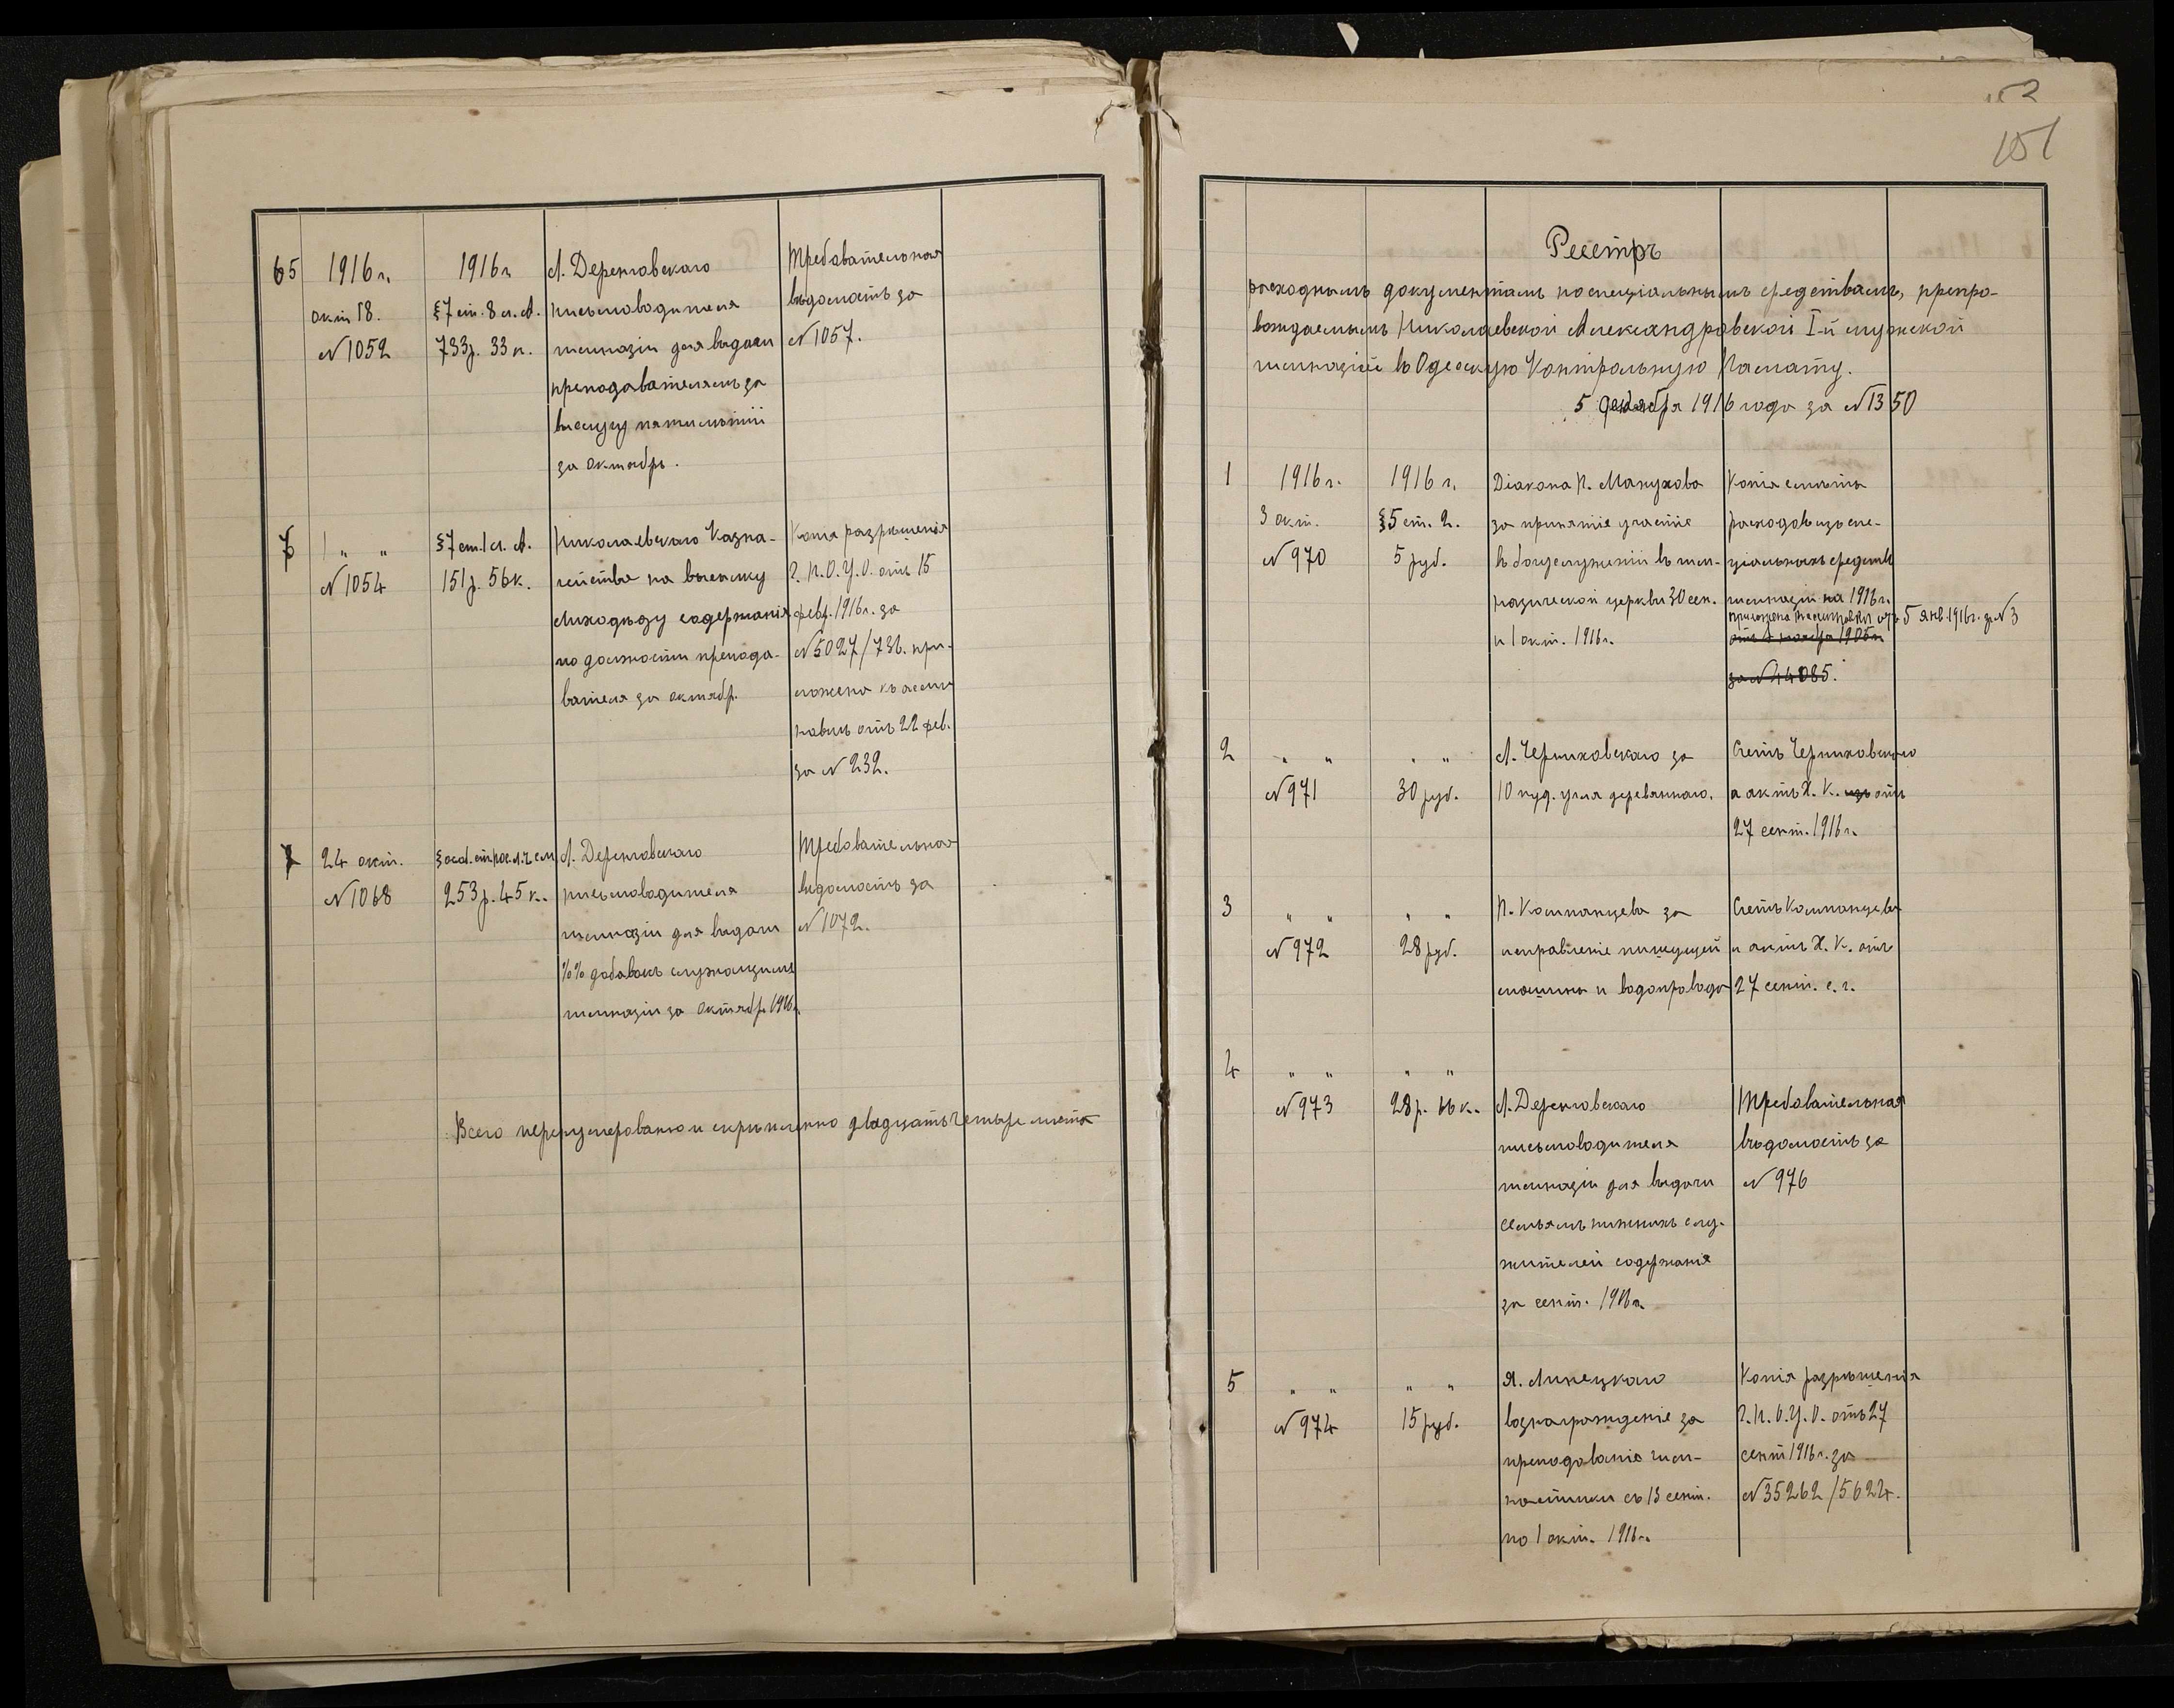 65
1916 г.
окт 18.
№ 1052
1916 г
§7 ст. 8 л. А.
733 р. 33 к.
Л. Деренговскаго
письмоводителя
гимназіи для выдачи
преподавателямъ за
выслугу пятилѣтій
за октябрь.
Требовательная
вѣдомость за
№ 1057.
" "
№ 1054
§7 ст. 1 л. А.
151 р. 56 к.
Николаевскаго Казна-
чейства на высылку
содержанія
по должности препода-
вателя за октябр.
Копія разрѣшенія
Г. П. О. У. О. отъ 15
февр. 1916 г. за
№ 5027/736. при-
ложена къ ассиг
новкѣ отъ 22 фев.
за № 232.
7
24 окт.
№ 1068
253 р. 45 к.
Л. Деренговскаго
письмоводителя
гимназіи для выдачи
%% добавокъ служащимъ
гимназіи за октябр. 1916 г.
Требовательная
вѣдомость за
№ 1072.
Всего перенумеровано и скрѣплено двадцать четыре листа
151
Реестръ
расходнымъ документамъ по спеціальнымъ средствамъ, препро-
вождаемымъ Николаевской Александровской I-й мужской
гимназіей въ Одесскую Контрольную Палату.
5 декабря 1916 года за № 1350
1
1916 г.
3 окт.
№ 970
1916 г.
§5 ст. 2.
5 руб.
Діакона П. Манухова
за принятіе участіе
въ богослуженіи въ гим-
назической церкви 30 сен.
и 1 окт. 1916 г.
Копія смѣты
расходовъ изъ спе-
ціальныхъ средствъ
гимназіи на 1916 г.
приложена къ ассигновкѣ отъ 5 янв. 1916 г. за № 3
отъ ноября 1905 г
за № 44085.
2
" "
№ 971
" "
30 руб.
Л. Черниховскаго за
10 пуд. угля деревяннаго.
Счетъ Черниховскаго
и актъ Х. К. отъ
27 сент. 1916 г.
3
" "
№ 972
" "
28 руб.
П. Компанцева за
исправленіе пишущей
машины и водопровода
Счетъ Компанцева
и актъ Х. К. отъ
27 сент. с. г.
4
" "
№ 973
" "
28 р. 66 к.
Л. Деренговскаго
письмоводителя
гимназіи для выдачи
семьямъ нижнихъ слу-
жителей содержанія
за сент. 1916 г.
Требовательная
вѣдомость за
№ 976
5
" "
№ 974
" "
15 руб.
Я. Линецкаго
вознагражденіе за
преподаваніе гим-
настики съ 15 сент.
по 1 окт. 1916 г.
Копія разрѣшенія
Г. П. О. У. О. отъ 27
сент 1916 г. за
№ 35262/5624.